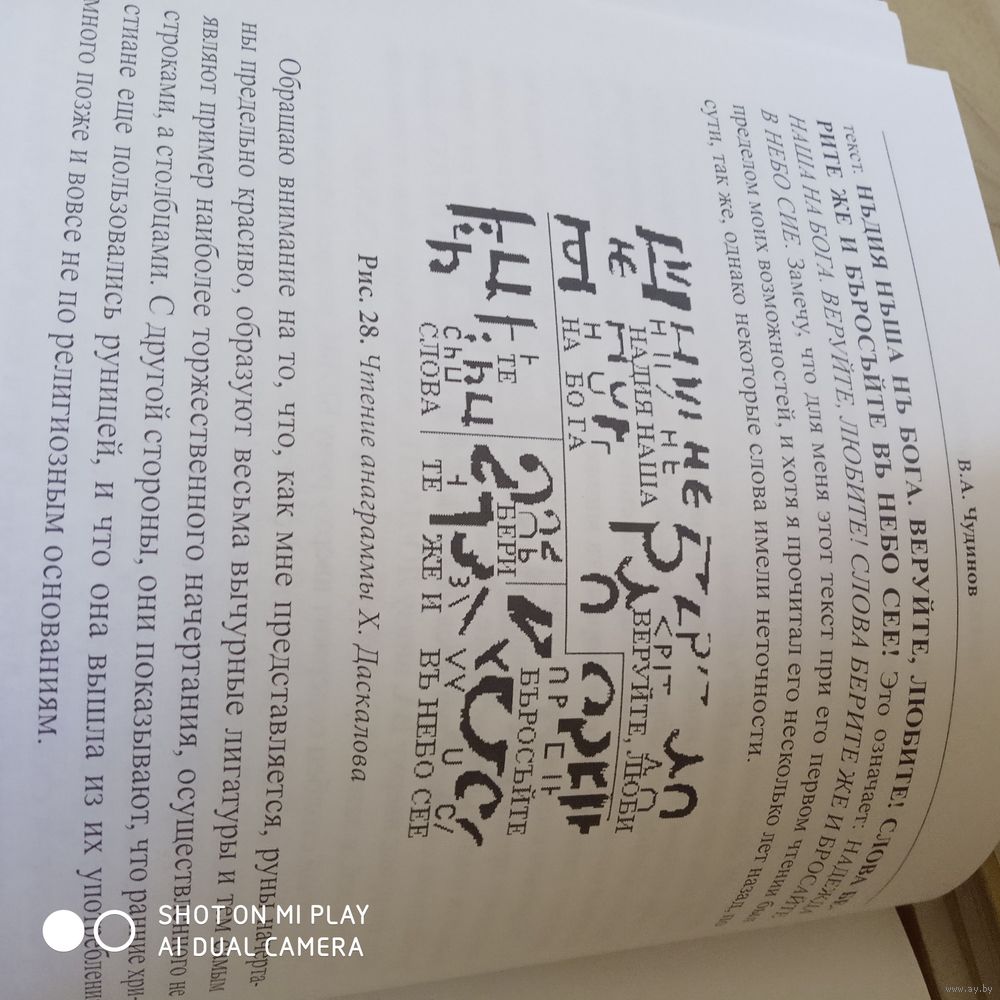 В.А. Чудинов
текст. НЪДИЯ НЪША НЪ БОГА. ВЕРУЙТЕ, ЛЮБИТЕ! СЛОВА БЕ
РИТЕ ЖЕ И БЪРОСЪЙТЕ ВЪ НЕБО СЕЕ! Это означает: НАДЕЖДА
НАША НА БОГА. ВЕРУЙТЕ, ЛЮБИТЕ! СЛОВА БЕРИТЕ ЖЕ И БРОСАЙТЕ
В НЕБО СИЕ. Замечу, что для меня этот текст при его первом чтении был
пределом моих возможностей, и хотя я прочитал его несколько лет назад, по
сути, так же, однако некоторые слова имели неточности.
НАДИЯ НАША ВЕРУЙТЕ, ЛЮБИ
НА БО ГА
ТЕ БЕРИ БЪРОСЪЙТЕ
СЛОВА ТЕ ЖЕ И ВЪ НЕБО СЕЕ
Рис. 28. Чтение анаграммы Х. Даскалова
Обращаю внимание на то, что, как мне представляется, руны начерта-
ны предельно красиво, образуют весьма вычурные лигатуры и тем самым
являют пример наиболее торжественного начертания, осуществленного не
строками, а столбцами. С другой стороны, они показывают, что ранние хри-
стиане еще пользовались руницей, и что она вышла из их употребления
много позже и вовсе не по религиозным основаниям.
SHOT ON MI PLAY
AI DUAL CAMERA
www.ay.by